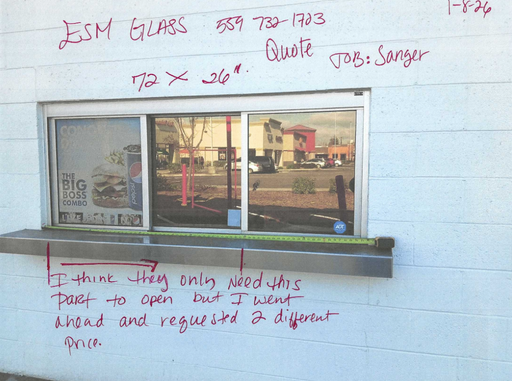 1-8-26
ESM GLASS 559 732-1723
Quote
JOB: Sanger
72 x 26".
COMBO
THE
BIG
BOSS
COMBO
pepsi
ADT
I think they only need this
part to open but I went
ahead and requested 2 different
price.